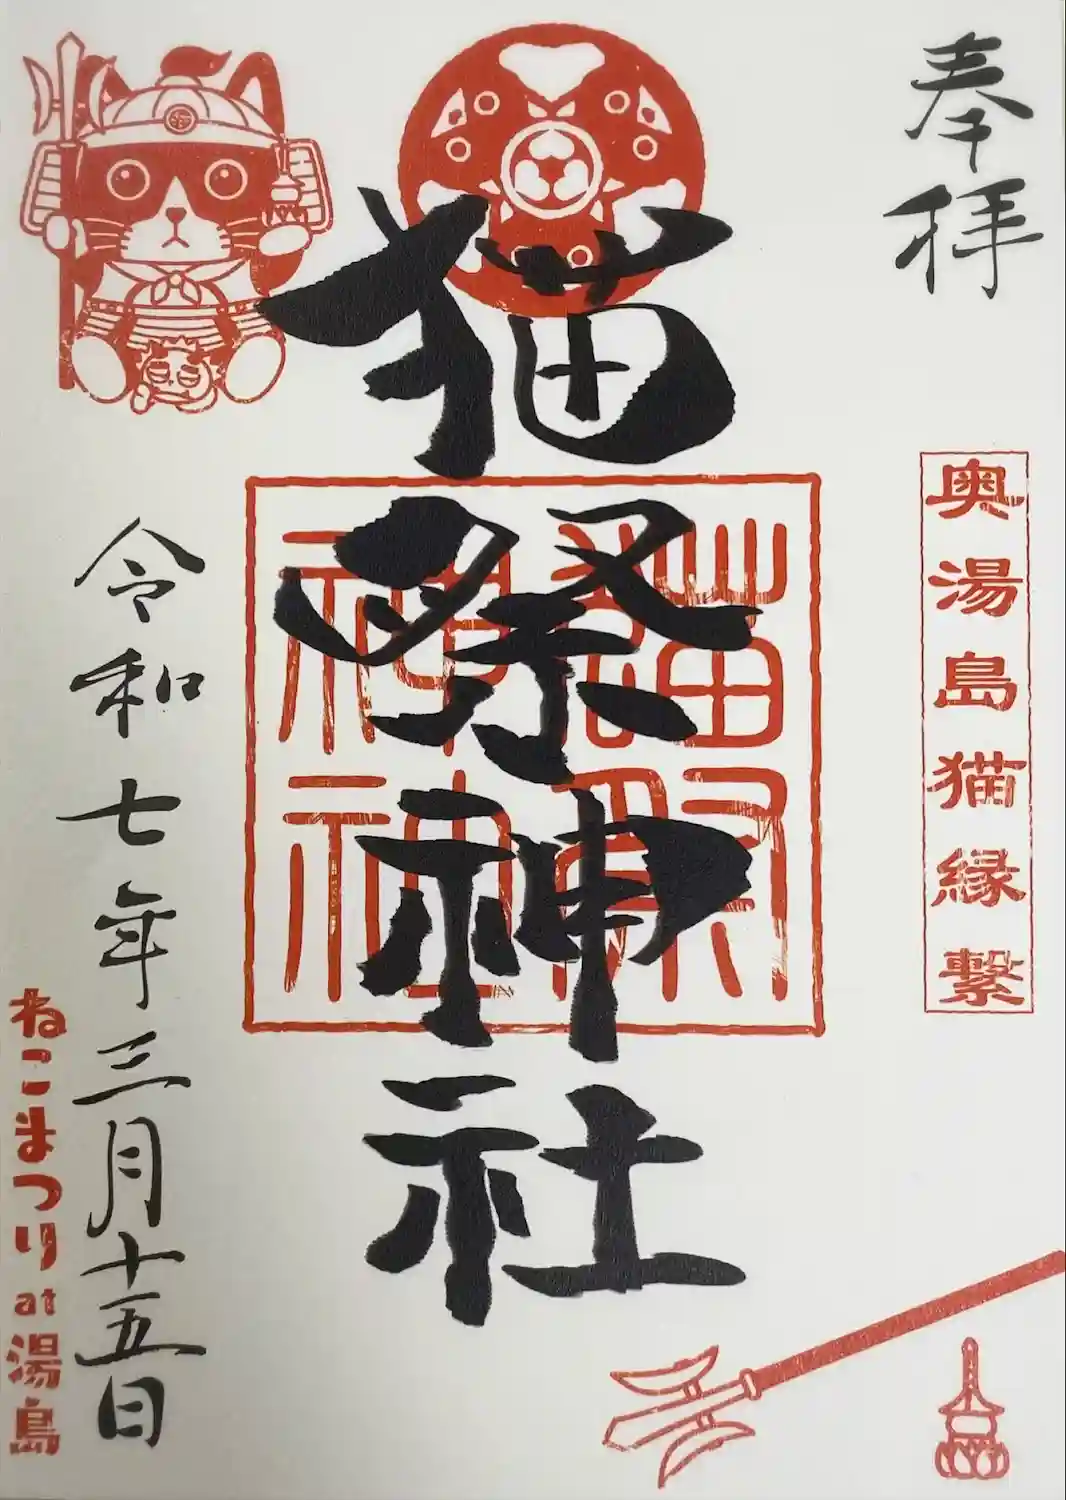 奉拝
奥湯島猫縁繋
猫祭神社
猫祭神社
令和七年三月十五日
ねこまつりat湯島